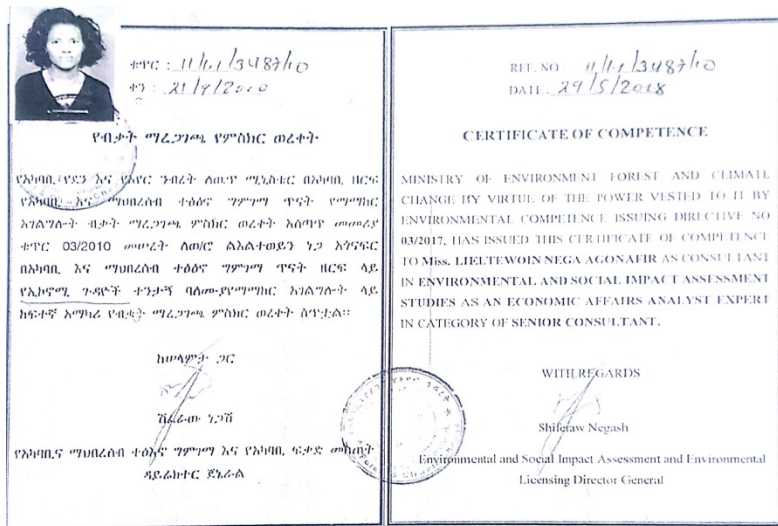 ቁጥር : 11/1.1/3487/10
ቀን : 21/9/2010
የብቃት ማረጋገጫ የምስክር ወረቀት
የአካባቢ, የደን እና የአየር ንብረት ለውጥ ሚኒስቴር በአካባቢ ዘርፍ
የአካባቢ እና ማህበረሰብ ተፅዕኖ ግምገማ ጥናት የማማከር
አገልግሎት ብቃት ማረጋገጫ ምስክር ወረቀት አሰጣጥ መመሪያ
ቁጥር 03/2010 መሠረት ለወ/ሮ ልእልተወይን ነጋ አጎናፍር
በአካባቢ እና ማህበረሰብ ተፅዕኖ ግምገማ ጥናት ዘርፍ ላይ
የኢኮኖሚ ጉዳዮች ተንታኝ ባለሙያየማማከር አገልግሎት ላይ
ከፍተኛ አማካሪ የብቃት ማረጋገጫ ምስክር ወረቀት ሰጥቷል፡፡
ከሠላምታ ጋር
ሽፈራው ነጋሽ
የአካባቢና ማህበረሰብ ተፅእኖ ግምገማ እና የአካባቢ ፍቃድ መስጠት
ዳይሬክተር ጀኔራል
REF. NO : 11/1.1/3487/10
DATE : 29/5/2018
CERTIFICATE OF COMPETENCE
MINISTRY OF ENVIRONMENT FOREST AND CLIMATE
CHANGE BY VIRTUE OF THE POWER VESTED TO IT BY
ENVIRONMENTAL COMPETENCE ISSUING DIRECTIVE NO
03/2017, HAS ISSUED THIS CERTIFICATE OF COMPETENCE
TO Miss. LIELTEWOIN NEGA AGONAFIR AS CONSULTANT
IN ENVIRONMENTAL AND SOCIAL IMPACT ASSESSMENT
STUDIES AS AN ECONOMIC AFFAIRS ANALYST EXPERT
IN CATEGORY OF SENIOR CONSULTANT.
WITH REGARDS
Shiferaw Negash
Environmental and Social Impact Assessment and Environmental
Licensing Director General